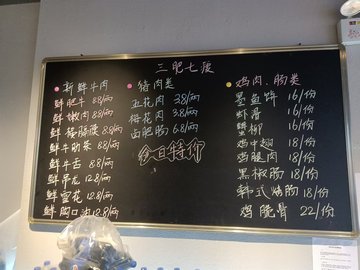 三肥七瘦
新鲜牛肉
鲜肥牛 8.8/两
鲜嫩肉 8.8/两
鲜 8.8/两
鲜牛肋条 8.8/两
鲜牛舌 8.8/两
鲜吊龙 12.8/两
鲜雪花 12.8/两
鲜胸口油 12.8/两
猪肉类
五花肉 3.8/两
梅花肉 3.8/两
卤肥肠 6.8/两
今日特价
鸡肉、肠类
墨鱼饼 16/份
虾滑 16/份
蟹柳 16/份
鸡中翅 18/份
鸡腿肉 18/份
黑椒肠 18/份
韩式烤肠 18/份
鸡脆骨 22/份